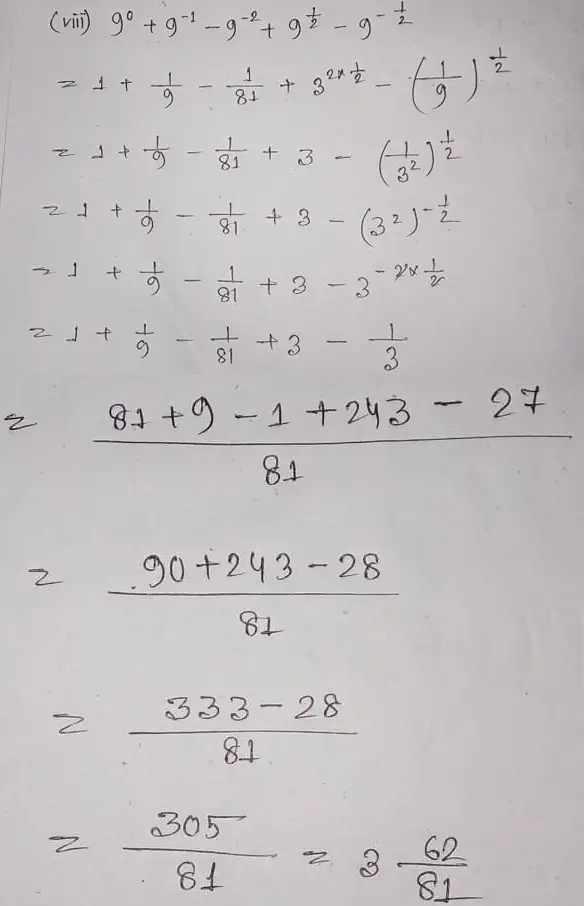 (viii) 9⁰ + 9⁻¹ - 9⁻² + 9^(1/2) - 9^(-1/2)
= 1 + 1/9 - 1/81 + 3^(2×1/2) - (1/9)^(1/2)
= 1 + 1/9 - 1/81 + 3 - (1/3²)^(1/2)
= 1 + 1/9 - 1/81 + 3 - (3²)^(-1/2)
= 1 + 1/9 - 1/81 + 3 - 3^(-2×1/2)
= 1 + 1/9 - 1/81 + 3 - 1/3
= (81 + 9 - 1 + 243 - 27)/81
= (90 + 243 - 28)/81
= (333 - 28)/81
= 305/81 = 3 62/81